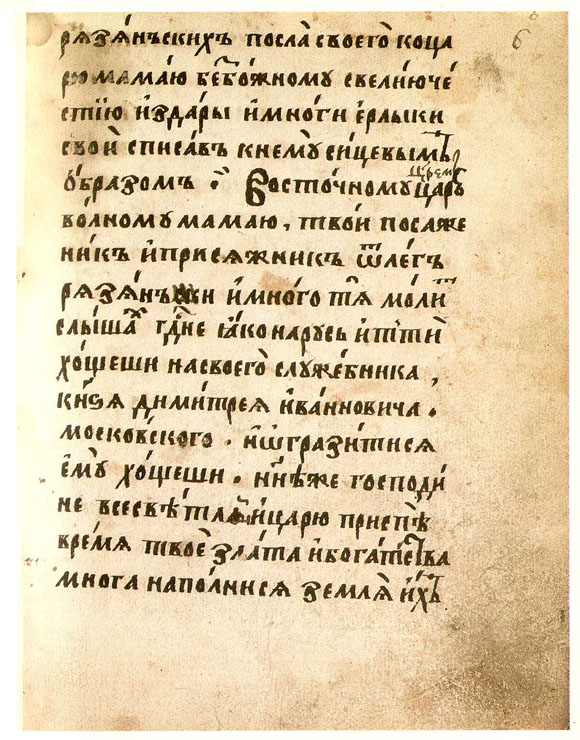 6
рязѧ́нъскихъ посла̀ своего̀ коца
рю мама́ю безбо́жному свелию че
стїю и҆здары̀ и҆мно́ги е҆рлыки
свои̑ списа́въ кнемꙋ̀ си́цевымъ
о҆́бразомъ : Восто́чномꙋ царь
цр҃ем
во́лному мамаю , твои̑ посаже
никъ и҆присѧжникъ ѿле́гъ
рѧзѧ́нъски и҆мно́го тѧ̀ моли
слы́шах гдⷭ҇не ꙗ҆́ко нарусь и҆тти̑
хо́щеши насвоего̀ слꙋже́бника ,
кнѕѧ̑ дими́трея и҆ва́нновича .
моско́вского . и҆ѡ҆грази́тися
е҆мꙋ̀ хо́щеши . нн҃ѣже господи
не всесвѣ́тлыи царю приспѣ̀
вре́мя твоѐ зла́та и҆бога́тества
мно́га напо́лнися землѧ̀ и҆́хъ